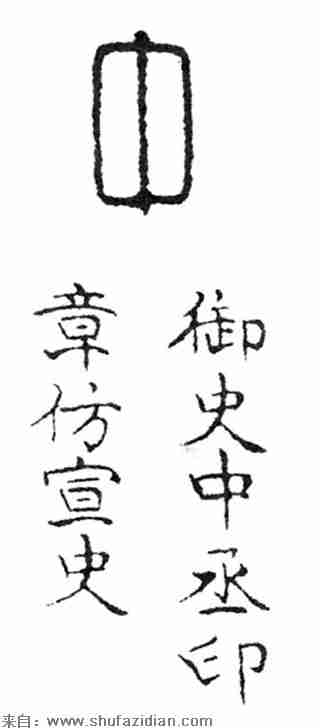 中
御史中丞印
章仿宣史
来自：www.shufazidian.com